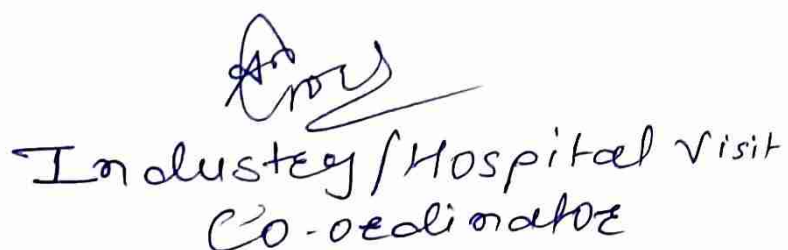 Industry/Hospital Visit
Co-ordinator